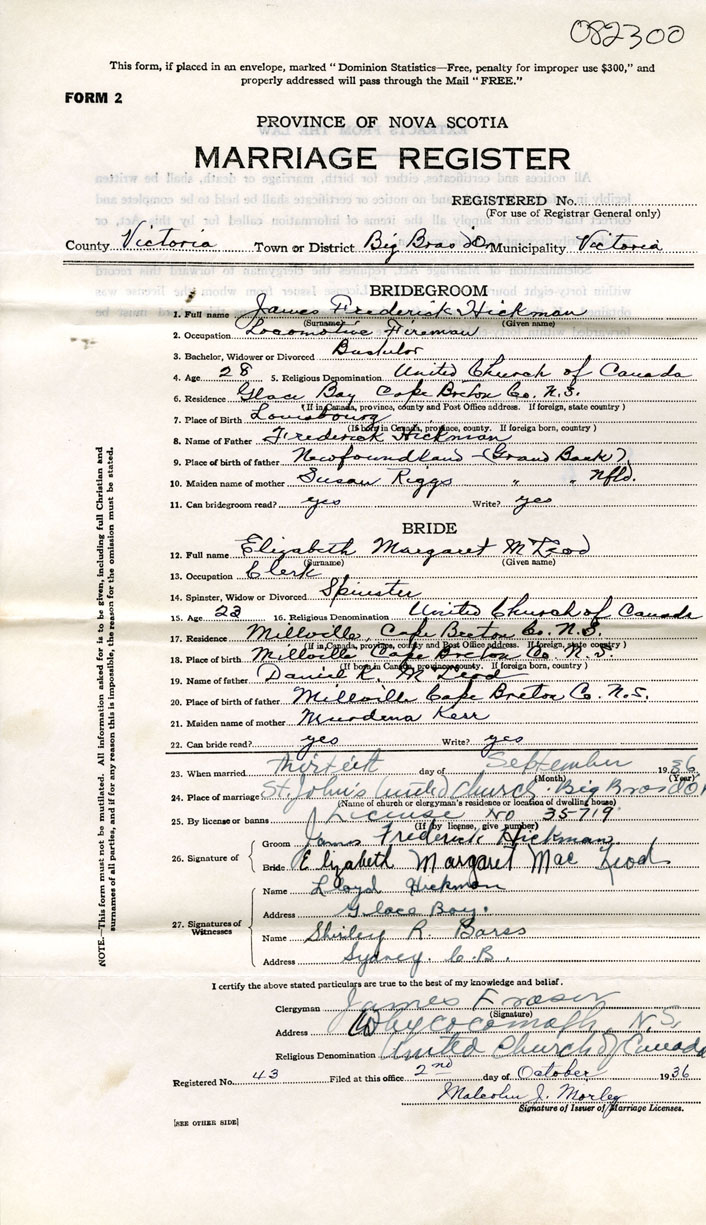 082300
This form, if placed in an envelope, marked "Dominion Statistics—Free, penalty for improper use $300," and
properly addressed will pass through the Mail "FREE."
FORM 2
PROVINCE OF NOVA SCOTIA
MARRIAGE REGISTER
REGISTERED No.
(For use of Registrar General only)
County Victoria Town or District Big Bras d'Or Municipality Victoria
BRIDEGROOM
1. Full name James Frederick Hickman
(Surname) (Given name)
2. Occupation Locomotive Fireman
3. Bachelor, Widower or Divorced Bachelor
4. Age 28 5. Religious Denomination United Church of Canada
6. Residence Glace Bay Cape Breton Co. N.S.
(If in Canada, province, county and Post Office address. If foreign, state country)
7. Place of Birth Louisbourg
(If born in Canada, province, county. If foreign born, country)
8. Name of Father Frederick Hickman
9. Place of birth of father Newfoundland - (Grand Bank)
10. Maiden name of mother Susan Riggs " " Nfld.
11. Can bridegroom read? yes Write? yes
BRIDE
12. Full name Elizabeth Margaret McLeod
(Surname) (Given name)
13. Occupation Clerk
14. Spinster, Widow or Divorced Spinster
15. Age 23 16. Religious Denomination United Church of Canada
17. Residence Millville, Cape Breton Co. N.S.
(If in Canada, province, county and Post Office address. If foreign, state country)
18. Place of birth Millville Cape Breton Co. N.S.
(If born in Canada, province, county. If foreign born, country)
19. Name of father Daniel K. McLeod
20. Place of birth of father Millville Cape Breton Co. N.S.
21. Maiden name of mother Murdena Kerr
22. Can bride read? yes Write? yes
23. When married thirtieth day of September 1936
(Month) (Year)
24. Place of marriage St. John's United Church. Big Bras d'Or
(Name of church or clergyman's residence or location of dwelling house)
25. By license or banns License No 35-719
(If by license, give number)
26. Signature of Groom James Frederick Hickman
Bride Elizabeth Margaret Mac Leod
27. Signatures of Witnesses
Name Lloyd Hickman
Address Glace Bay.
Name Shirley R. Barss
Address Sydney. C.B.
I certify the above stated particulars are true to the best of my knowledge and belief.
Clergyman James Fraser
(Signature)
Address Whycocomagh, N.S.
Religious Denomination United Church of Canada
Registered No. 43 Filed at this office 2nd day of October 1936
Malcolm J. Morley
Signature of Issuer of Marriage Licenses.
[SEE OTHER SIDE]
NOTE.—This form must not be mutilated. All information asked for is to be given, including full Christian and
surnames of all parties, and if for any reason this is impossible, the reason for the omission must be stated.